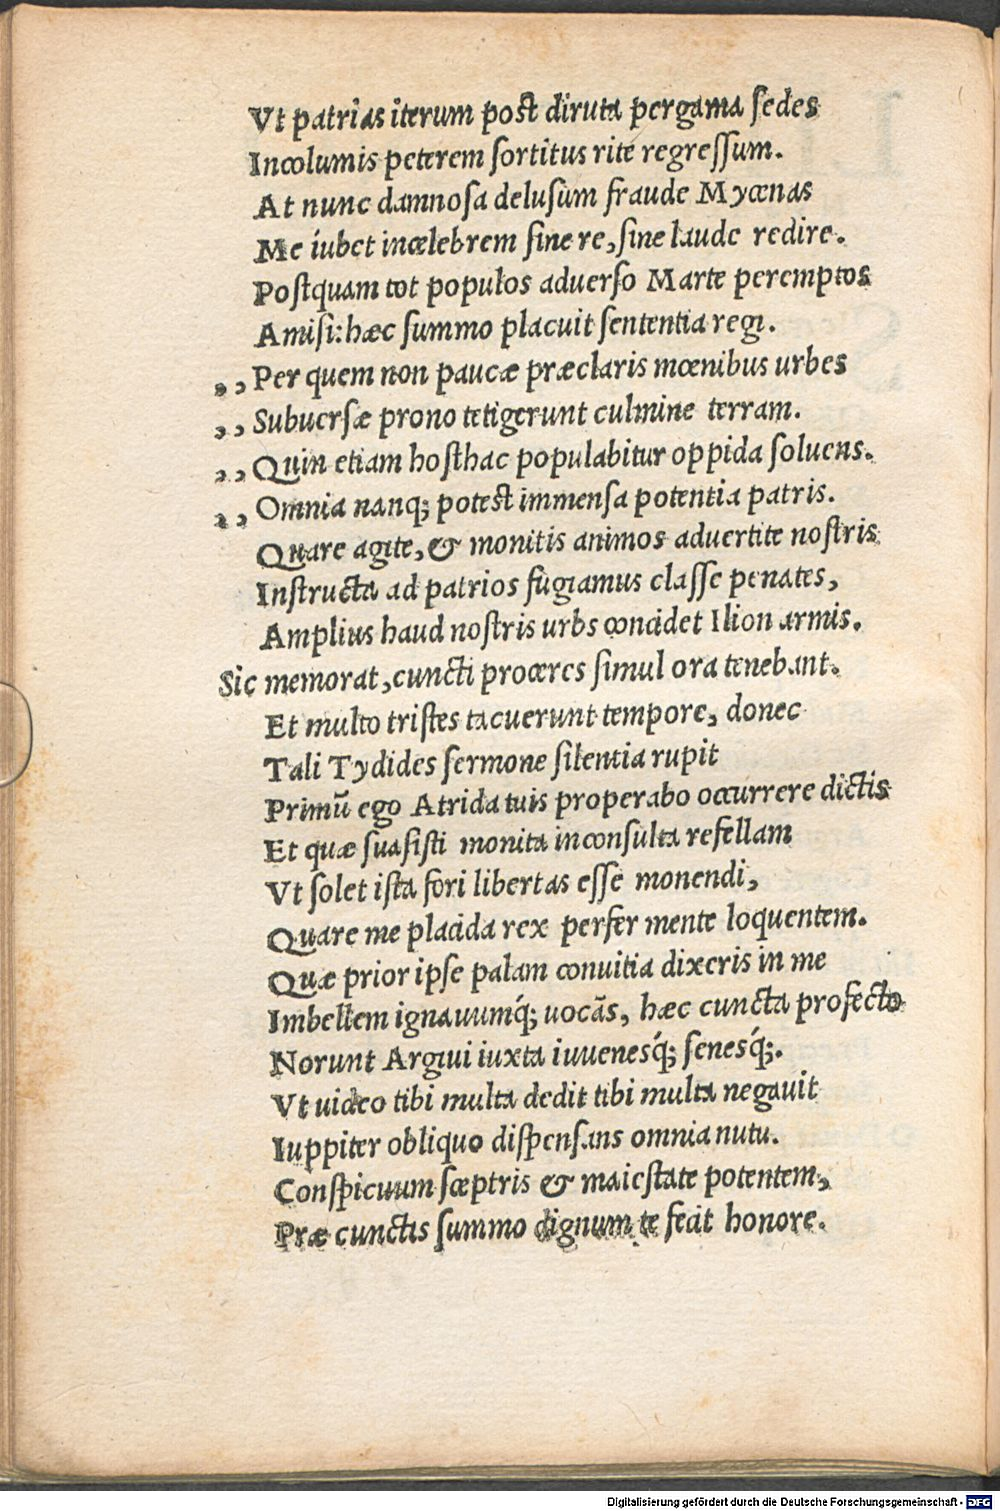 Vt patrias iterum post diruta pergama sedes
Incolumis peterem sortitus rite regressum.
At nunc damnosa delusum fraude Mycenas
Me iubet incelebrem sine re, sine laude redire.
Postquam tot populos aduerso Marte peremptos
Amisi: hæc summo placuit sententia regi.
,, Per quem non paucæ præclaris mœnibus urbes
,, Subuersæ prono tetigerunt culmine terram.
,, Quin etiam hosthac populabitur oppida soluens.
,, Omnia nanq; potest immensa potentia patris.
Quare agite, & monitis animos aduertite nostris
Instructa ad patrios fugiamus classe penates,
Amplius haud nostris urbs concidet Ilion armis.
Sic memorat, cuncti proceres simul ora tenebant.
Et multo tristes tacuerunt tempore, donec
Tali Tydides sermone silentia rupit
Primū ego Atrida tuis properabo occurrere dictis
Et quæ suasisti monita inconsulta refellam
Vt solet ista fori libertas esse monendi,
Quare me placida rex perfer mente loquentem.
Quæ prior ipse palam conuitia dixeris in me
Imbellem ignauumq́; uocās, hæc cuncta profecto
Norunt Argiui iuxta iuuenesq́; senesq́;.
Vt uideo tibi multa dedit tibi multa negauit
Iuppiter obliquo dispensans omnia nutu.
Conspicuum sceptris & maiestate potentem,
Præ cunctis summo dignum te fecit honore.
Digitalisierung gefördert durch die Deutsche Forschungsgemeinschaft - DFG